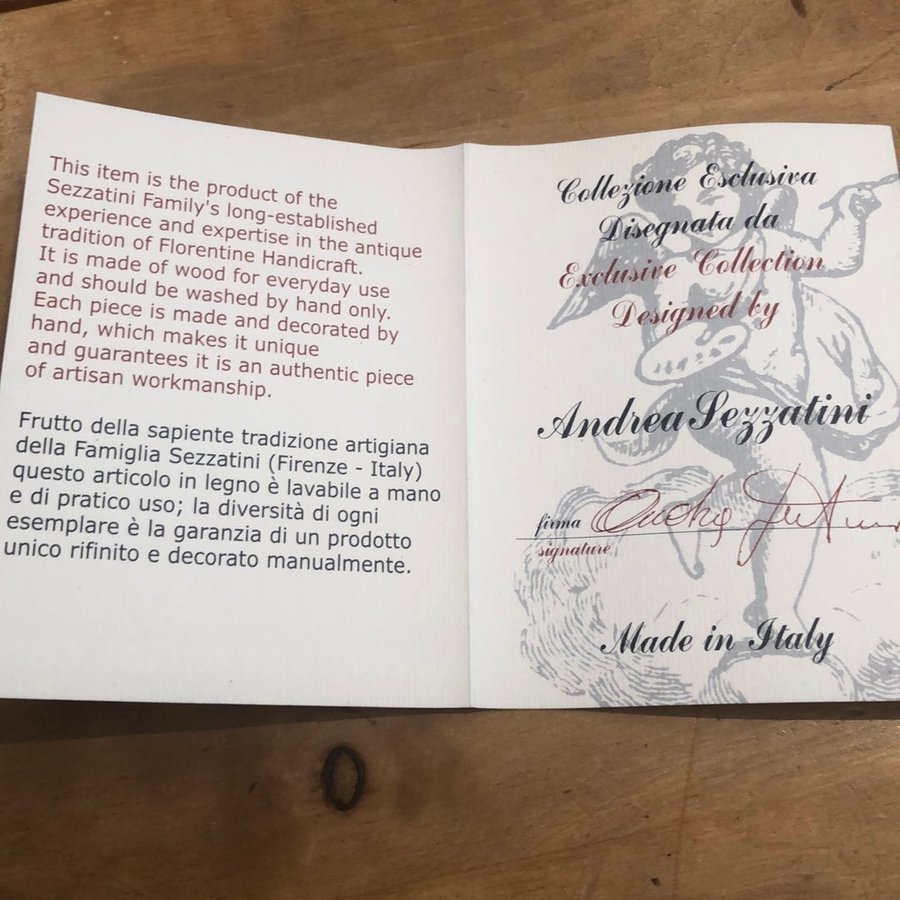 This item is the product of the
Sezzatini Family's long-established
experience and expertise in the antique
tradition of Florentine Handicraft.
It is made of wood for everyday use
and should be washed by hand only.
Each piece is made and decorated by
hand, which makes it unique
and guarantees it is an authentic piece
of artisan workmanship.
Frutto della sapiente tradizione artigiana
della Famiglia Sezzatini (Firenze - Italy)
questo articolo in legno è lavabile a mano
e di pratico uso; la diversità di ogni
esemplare è la garanzia di un prodotto
unico rifinito e decorato manualmente.
Collezione Esclusiva
Disegnata da
Exclusive Collection
Designed by
Andrea Sezzatini
firma
signature
Made in Italy